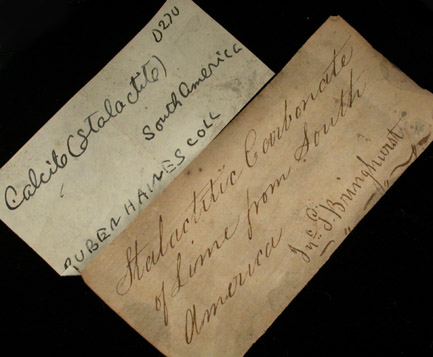 D270
Calcite (Stalactite)
South America
RUBEN HAINES COLL
Stalactitic Carbonate
of Lime from South
America
Jnº. S. Bringhurst